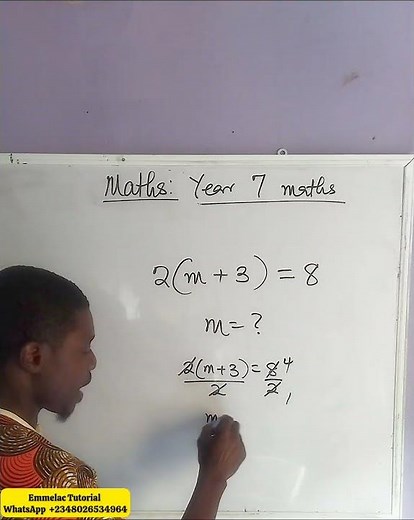 Maths: Year 7 maths
2(m + 3) = 8
m = ?
2(m+3) = 8 4
2 2 1
m
Emmelac Tutorial
WhatsApp +2348026534964